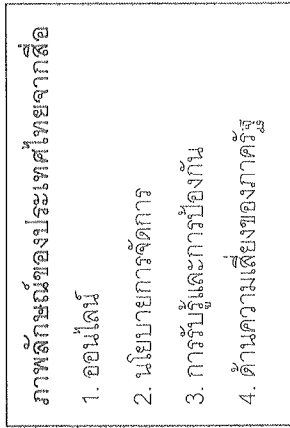 ภาพลักษณ์ของประเทศไทยจากสื่อ
1. ออนไลน์
2. นโยบายการจัดการ
3. การรับรู้และการป้องกัน
4. ด้านความเสี่ยงของภาครัฐ